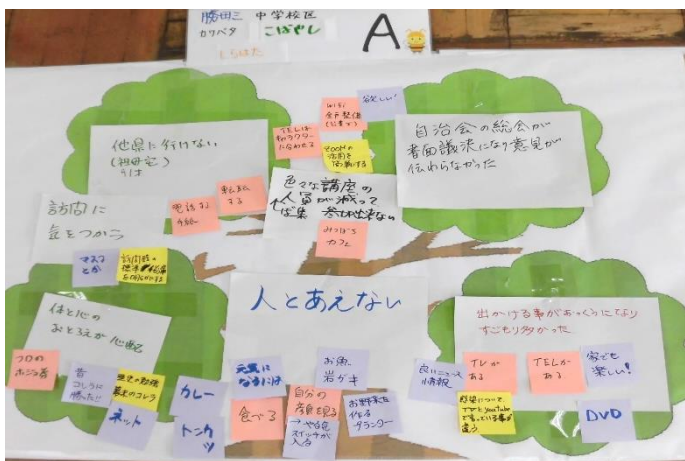 勝田三 中学校区
カワベタ こばやし
しらはた
A
他県に行けない
(祖母宅)
自治会の総会が
書面議決になり意見が
伝わらなかった
WiFi
欲しい!
TELは
に合わせる
ZOOMの
電話する
手紙
転送
する
色々な講座の
人員が減って
募集 参加出来ない
みつばち
カフェ
訪問に
気をつかう
マスク
とか
訪問時の
体と心の
おとろえが心配
プロの
昔
コレラに
勝った!!
歴史の勉強
幕末のコレラ
ネット
カレー
トンカツ
人とあえない
元気に
なるには
食べる
お魚
岩ガキ
自分の
顔を見る
→やる気
スイッチが
入る
お野菜を
作る
プランター
出かける事がおっくうになり
すごもり多かった
良いニュース
情報
TVが
ある
TELが
ある
家でも
楽しい!
感染について
TVとYouTube
で言っている事が
違う
DVD